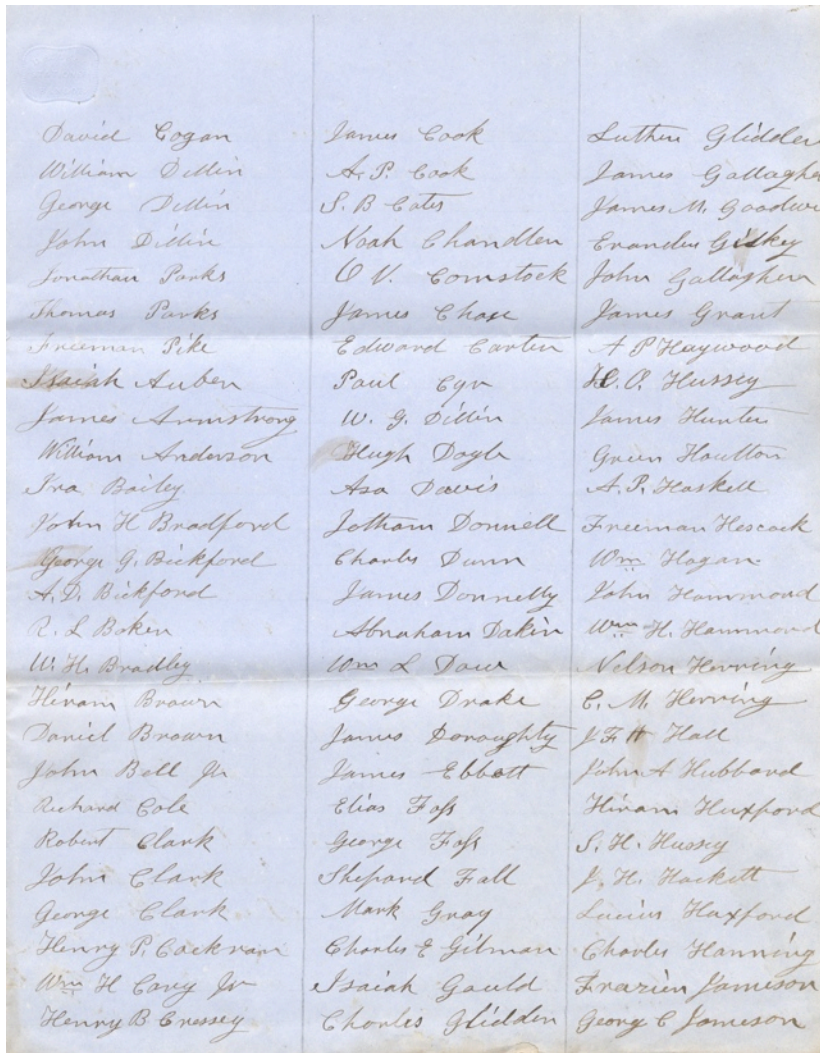 David Cogan
William Dillin
George Dillin
John Dillin
Jonathan Parks
Thomas Parks
Freeman Pike
Isaiah Auben
James Armstrong
William Anderson
Ira Bailey
John H Bradford
George G. Bickford
A. D. Bickford
R. L Boken
W. H. Bradley
Hiram Brown
Daniel Brown
John Bell Jr
Richard Cole
Robert Clark
John Clark
George Clark
Henry P. Cockran
Wm H Cary Jr
Henry B Cressey
James Cook
A. P. Cook
S. B Cates
Noah Chandler
O V. Comstock
James Chase
Edward Carter
Paul Cyr
W. G. Dillin
Hugh Doyle
Asa Davis
Jotham Donnell
Charles Dunn
James Donnelly
Abraham Dakin
Wm L Dow
George Drake
James Doroughty
James Ebbott
Elias Foss
George Foss
Shepard Fall
Mark Gray
Charles E Gilman
Isaiah Gould
Charles Glidden
Luther Glidden
James Gallagher
James M. Goodwi
Evander Gilkey
John Gallagher
James Grant
A P Haywood
H. O. Hussey
James Hunter
Green Houlton
A. P. Haskell
Freeman Hescock
Wm Hogan
John Hammond
Wm H. Hammond
Nelson Herring
C. M. Herring
J F H Hall
John A Hubbard
Hiram Huxford
S. H. Hussey
J. H. Hackett
Lucius Huxford
Charles Hanning
Frazier Jameson
Georg C Jameson